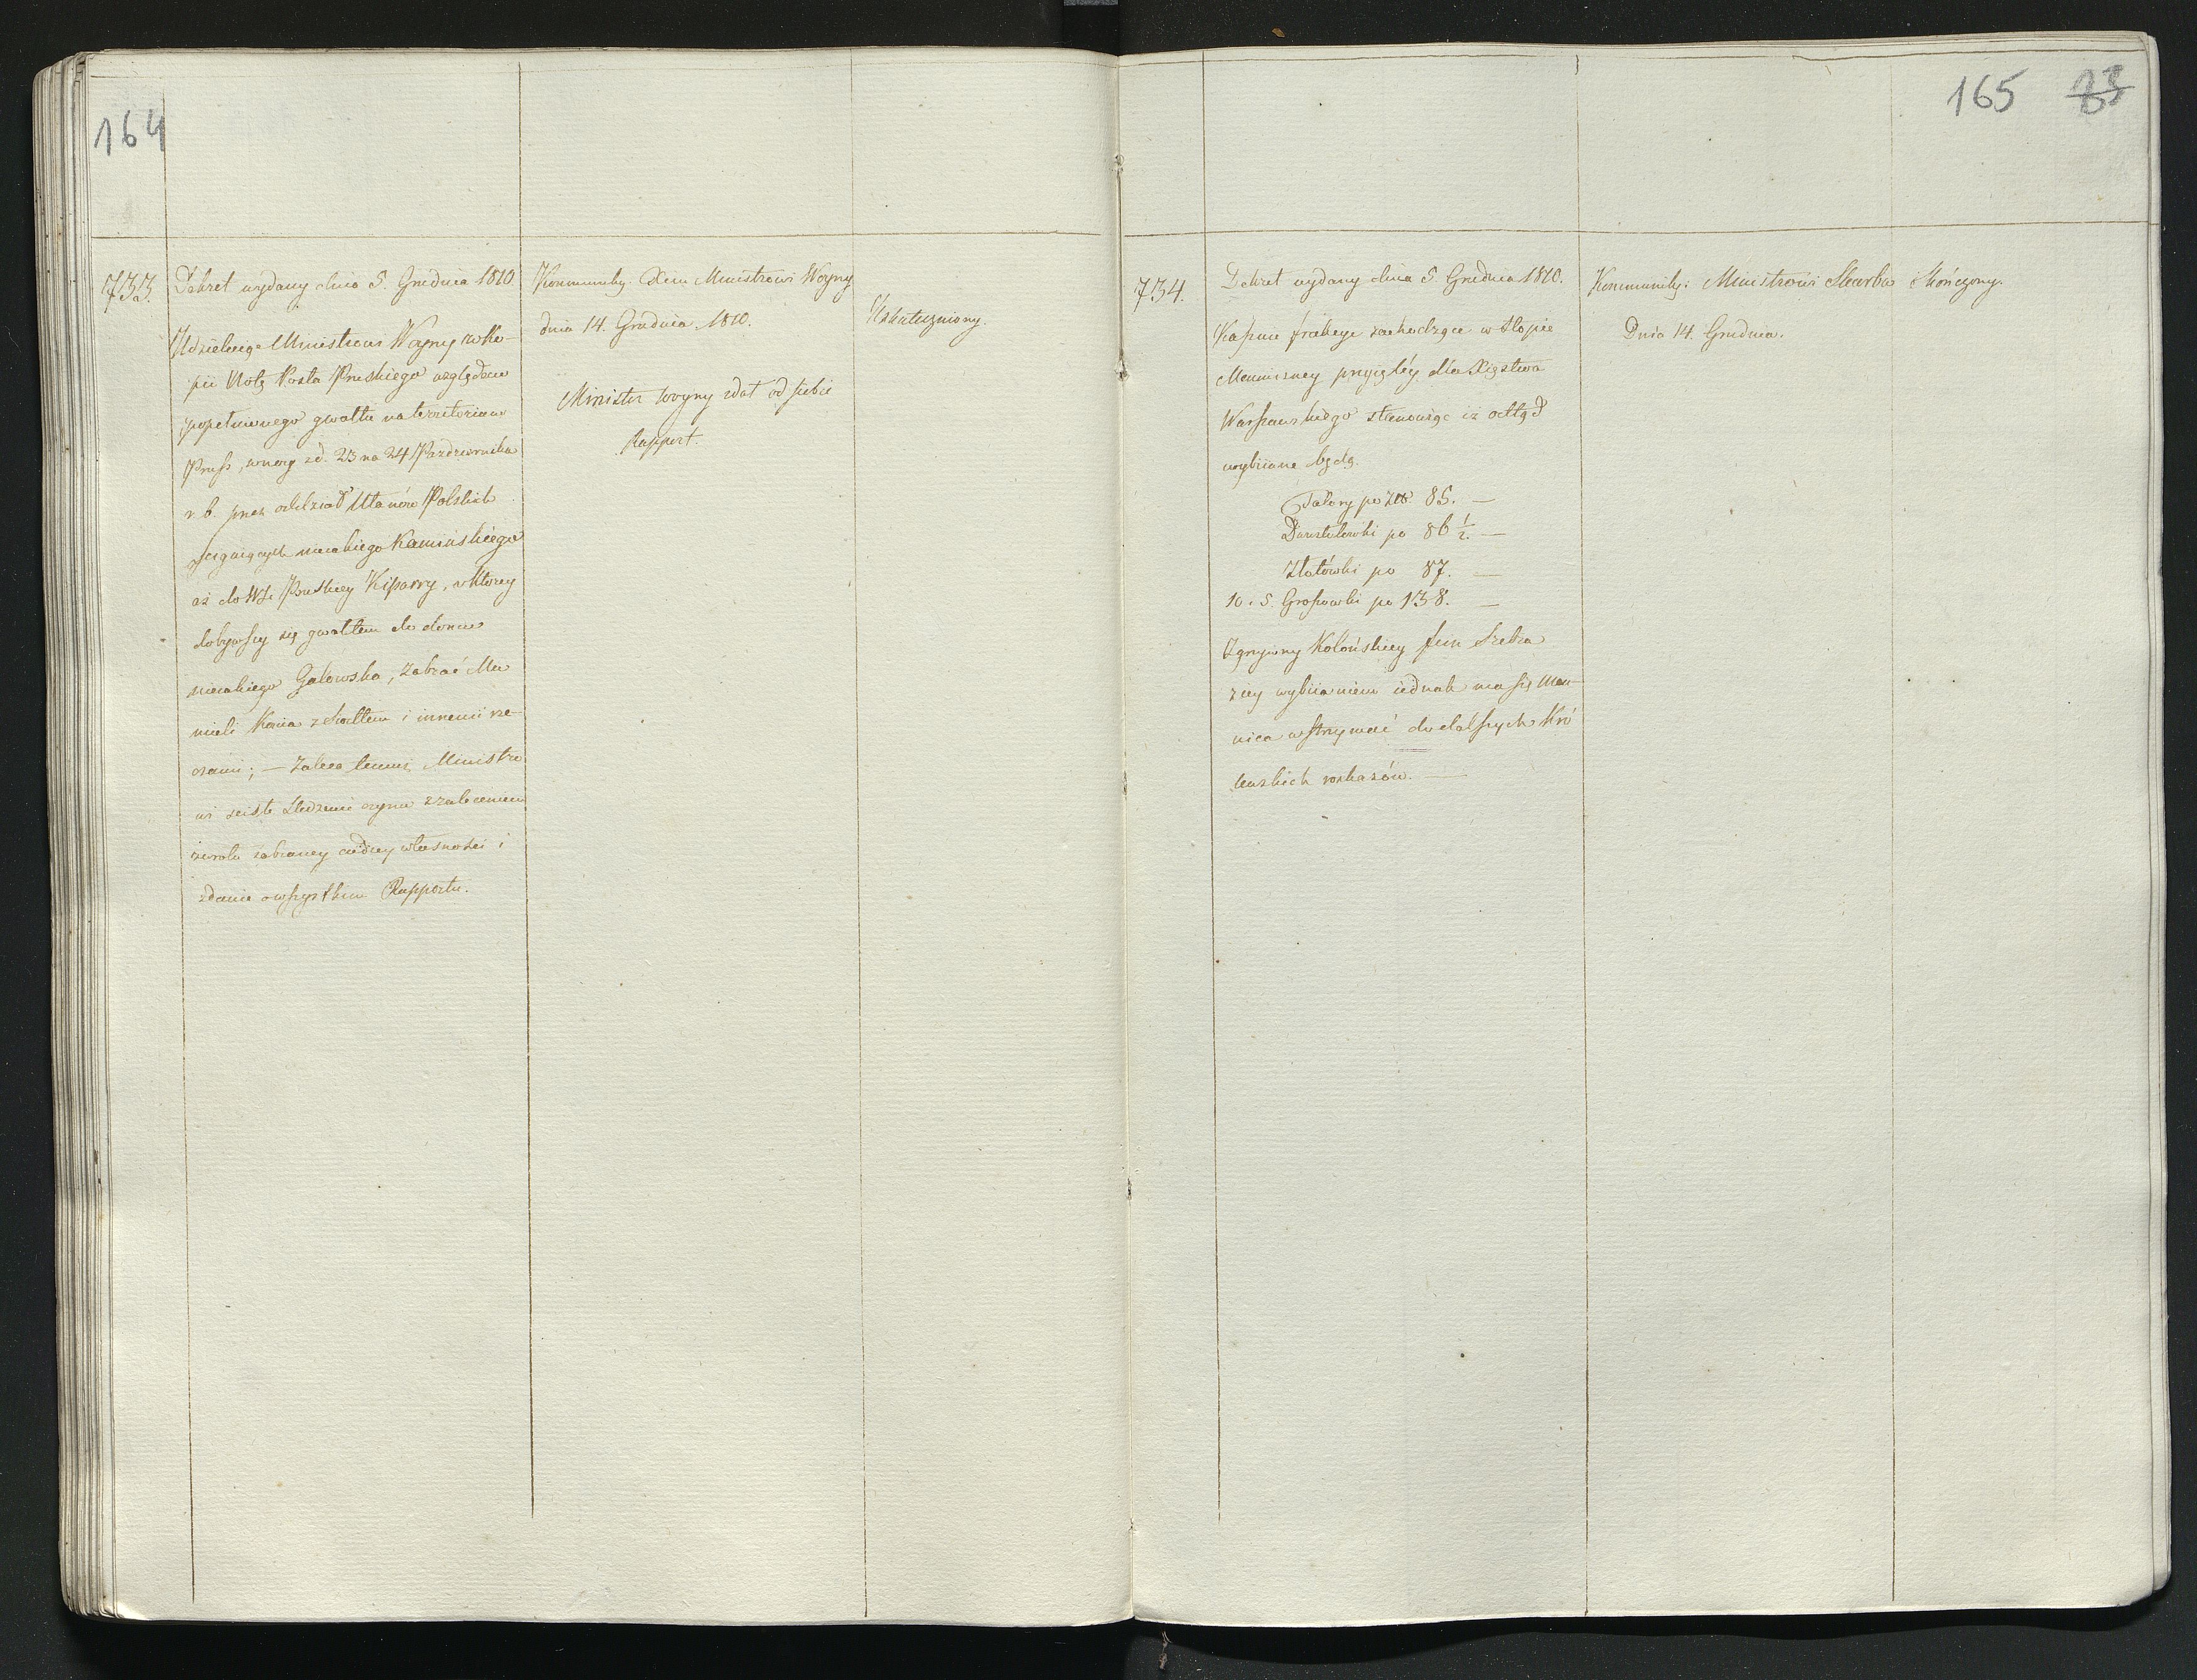 164
733.
a.
Dekret wydany dnia 5. Grudnia 1810.
Udzielając Ministrowi Woyny w Ko-
pii Notę Posła Pruskiego względem
popełnionego gwałtu na territorium
Pruss, w nocy z d. 23 na 24 Pazdziernika
r. b. przez oddział Ułanów Polskich
ścigaiących nieiakiego Kaminskiego
aż do Wsi Pruskiey Kiparry, w ktorey
dobywszy się gwałtem do domu
nieiakiego Galowska, zabrać Mu
mieli Konia z siodłem i innemi rze-
czami; — Zaleca temuż Ministro
wi scisłe śledzenie czynu z zaleceniem
zwrotu zabraney cudzey własności i
zdania o wszystkiem Rapportu.
Kommuniky. Xciu Ministrowi Woyny
dnia 14. Grudnia 1810.
Minister woyny zdał od siebie
Rapport.
Uskuteczniony.
165 83
734.
Dekret wydany dnia 5 Grudnia 1810.
frakcye zachodzące w stopie
Menniczney przyiętéy dla Xięstwa
Warszawskiego stanowiąc iż odtąd
wybiiane będą.
Talary po 85. —
Dwuzłotówki po 86 1/2. —
Złotówki po 87. —
10. i 5. Groszowki po 138. —
Z grzywny Kolońskiey fein Srebra
z ich wybiianiem iednak ma się Men-
nica wstrzymać do dalszych Kró
lewskich rozkazów. —
Kommuniky: Ministrowi Skarbu
Dnia 14. Grudnia.
Skończony.